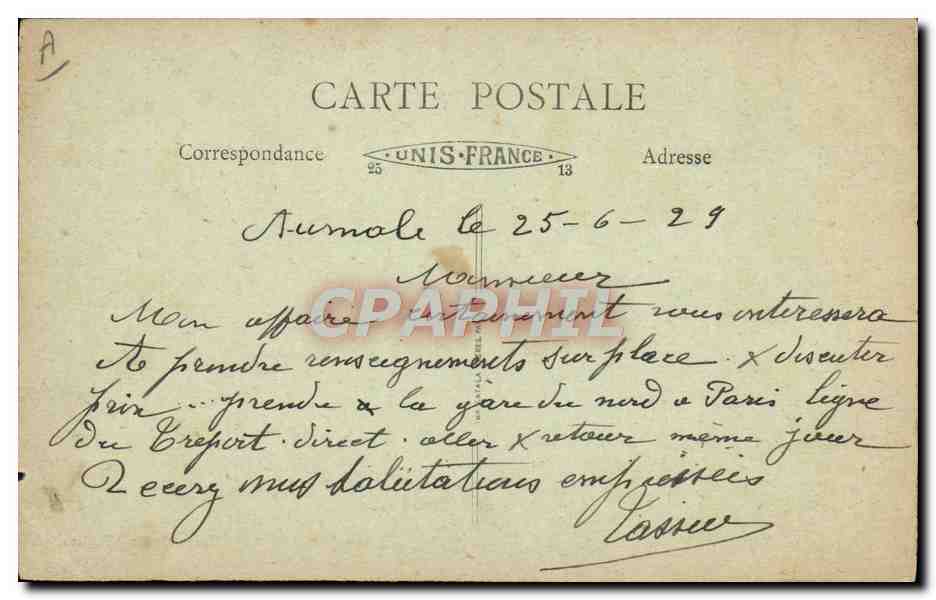 A
CARTE POSTALE
Correspondance
UNIS·FRANCE
25 13
Adresse
Aumale le 25-6-29
Monsieur
CPAPHIL
Mon affaire certainement vous interessera
A prendre renseignements sur place. & discuter
prix... prendre à la gare du nord a Paris ligne
du Treport. direct. aller & retour même jour
Recevez mes salutations empressées